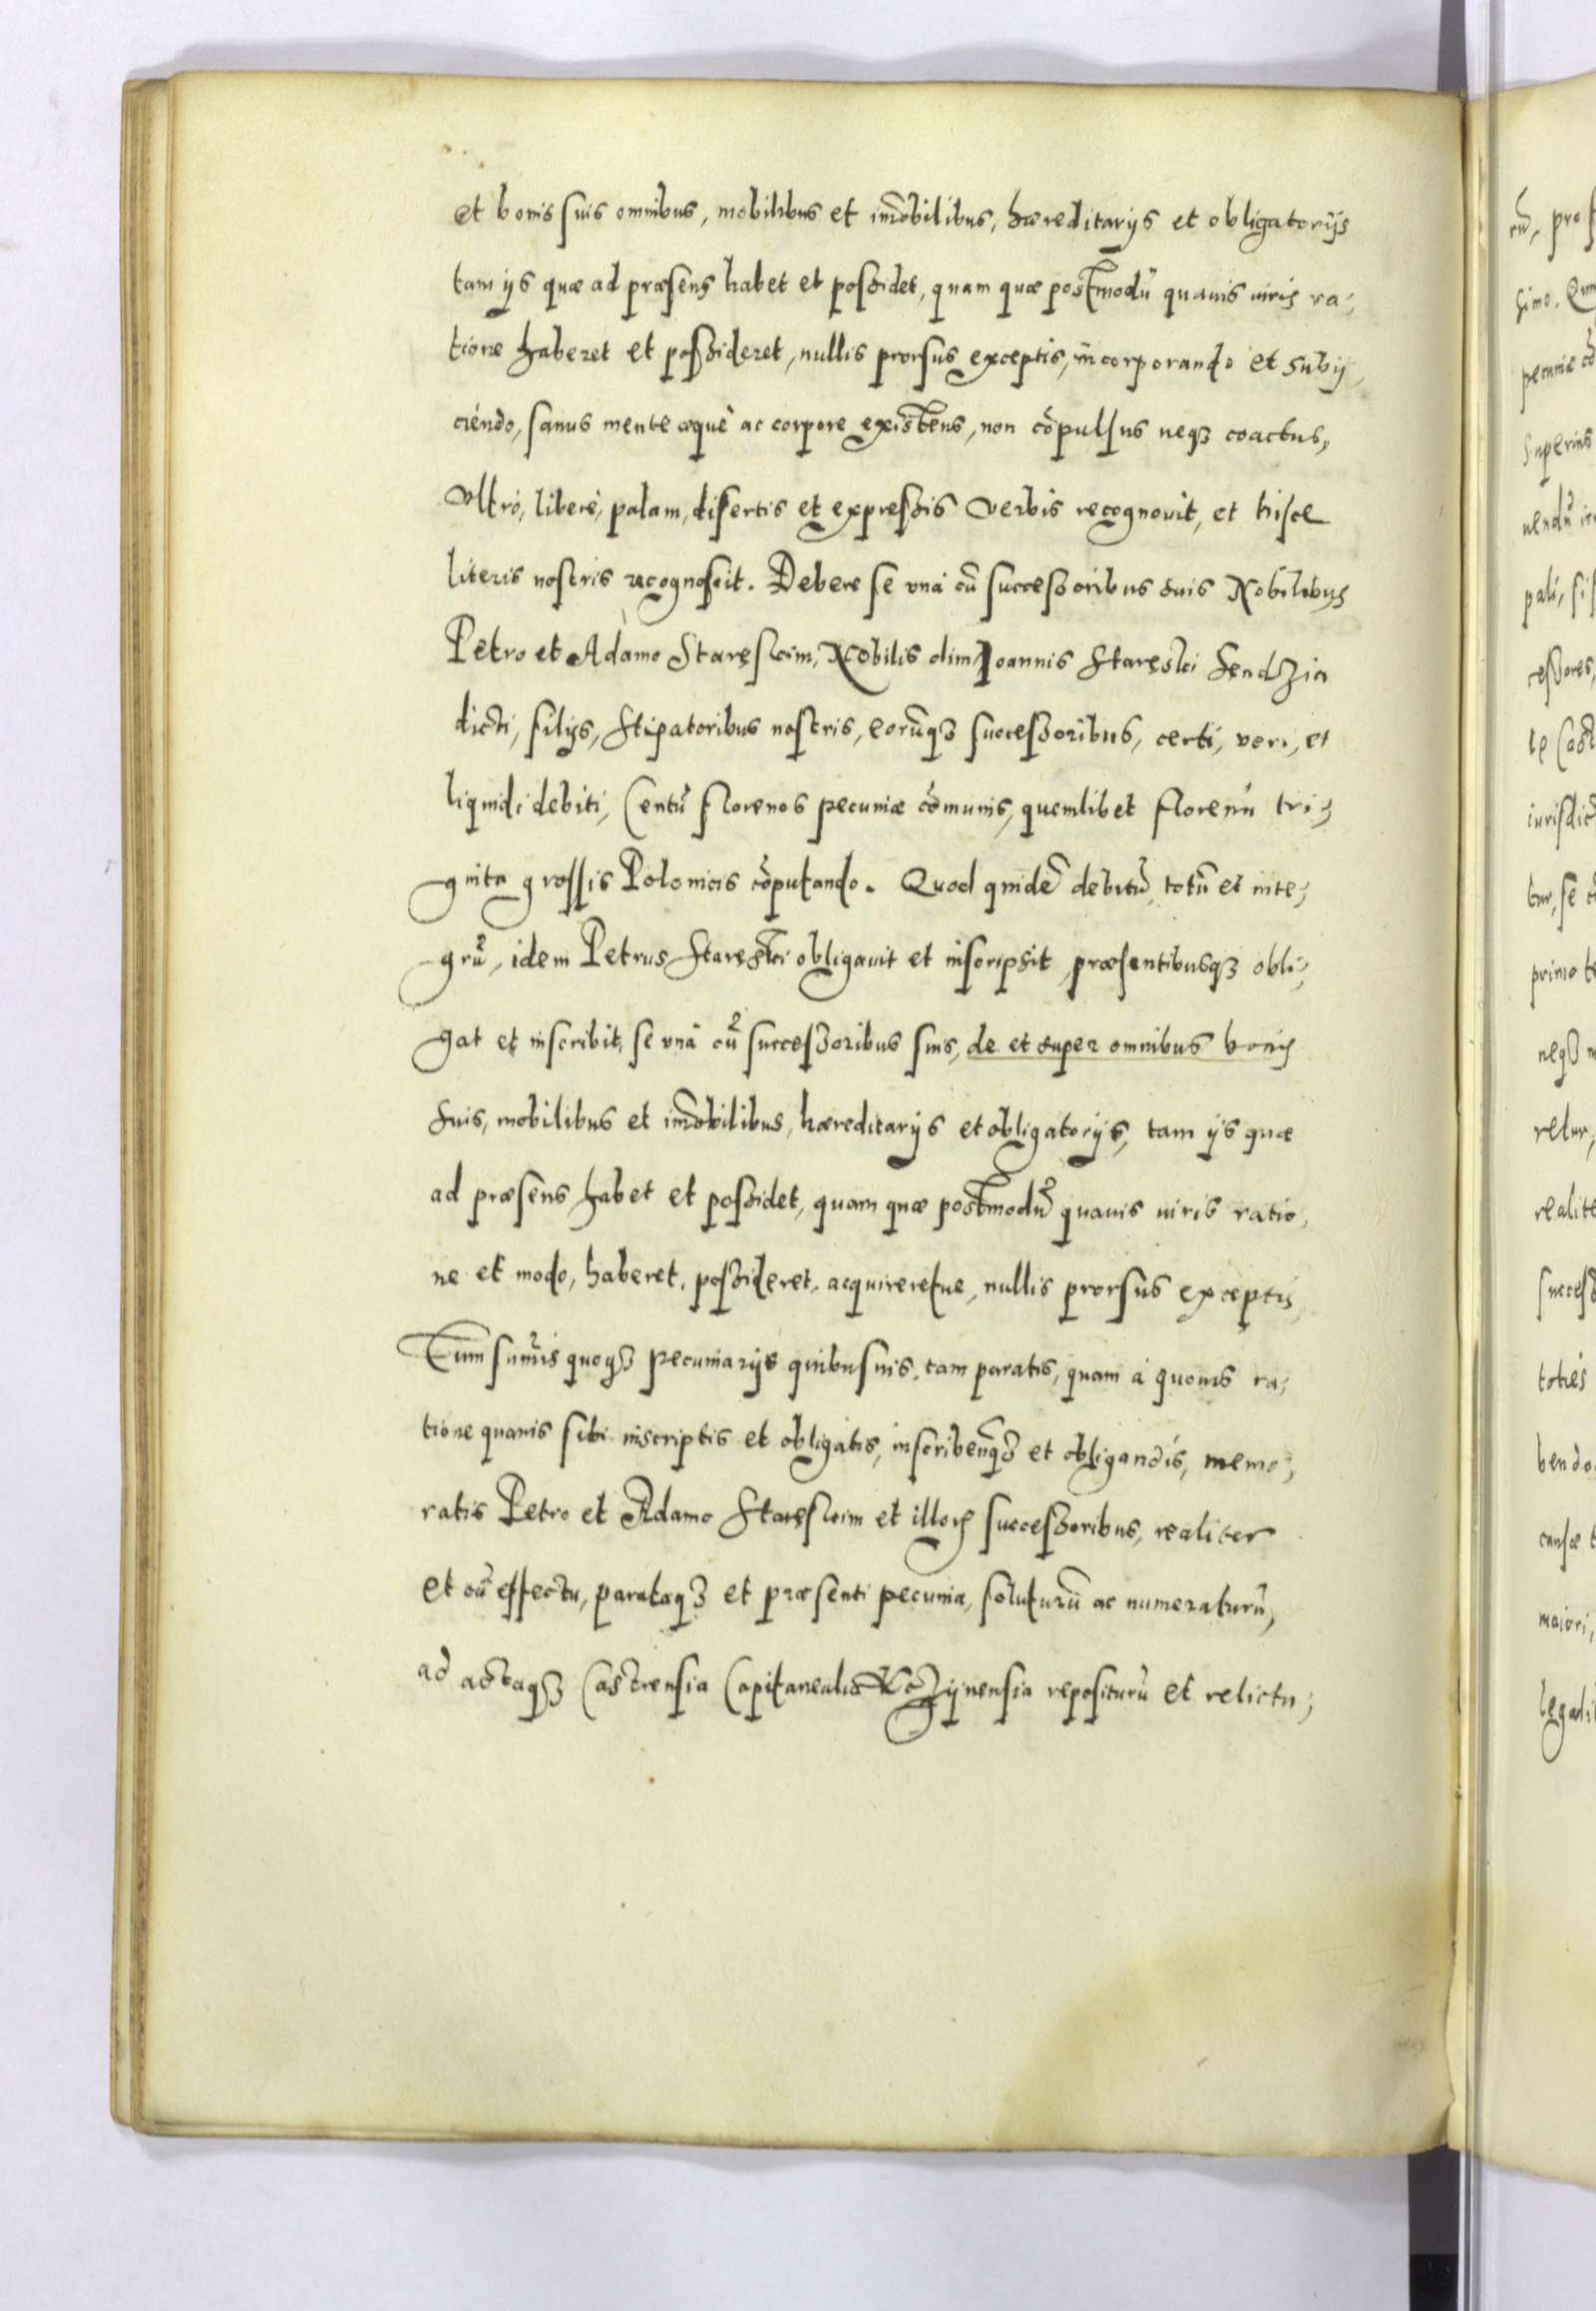 et bonis suis omnibus, mobilibus et im̃obilibus, hæreditarijs et obligatorijs
tam ijs quæ ad præsens habet et possidet, quam quæ postmodũ quauis iuris ra-
tione haberet et possideret, nullis prorsus exceptis, incorporando et subij-
ciendo, sanus mente æquè ac corpore existens, non cõpulsus neqʒ coactus,
Vltrò, liberè, palam, disertis et expressis verbis recognouit, et hisce
literis nostris recognoscit. Debere se vnà cũ successoribus suis Nobilibus
Petro et Adamo Staręskim, Nobilis olim Ioannis Staręski Sendzia
dicti, filijs, stipatoribus nostris, eorũqʒ successoribus, certi, veri, et
liquidi debiti, Centũ florenos pecuniæ cõmunis, quemlibet florenũ tri-
ginta grossis Polonicis cõputando. Quod quidẽ debitũ, totũ et inte-
grũ, idem Petrus Staręski obligauit et inscripsit, præsentibusqʒ obli-
gat et inscribit, se vnà cũ successoribus suis, de et super omnibus bonis
suis, mobilibus et im̃obilibus, hæreditarijs et obligatorijs, tam ijs quæ
ad præsens habet et possidet, quam quæ postmodũ quauis iuris ratio-
ne et modo, haberet, possideret, acquireretue, nullis prorsus exceptis,
Tum sum̃is quoqʒ pecuniarijs quibusuis, tam paratis, quam à quouis ra-
tione quauis sibi inscriptis et obligatis, inscribendisqʒ et obligandis, memo-
ratis Petro et Adamo Staręskim et illorum successoribus, realiter
et cũ effectu, parataqʒ et præsenti pecunia, soluturũ ac numeraturũ,
ad actaqʒ Castrensia Capitanealia repositurũ et relictu-